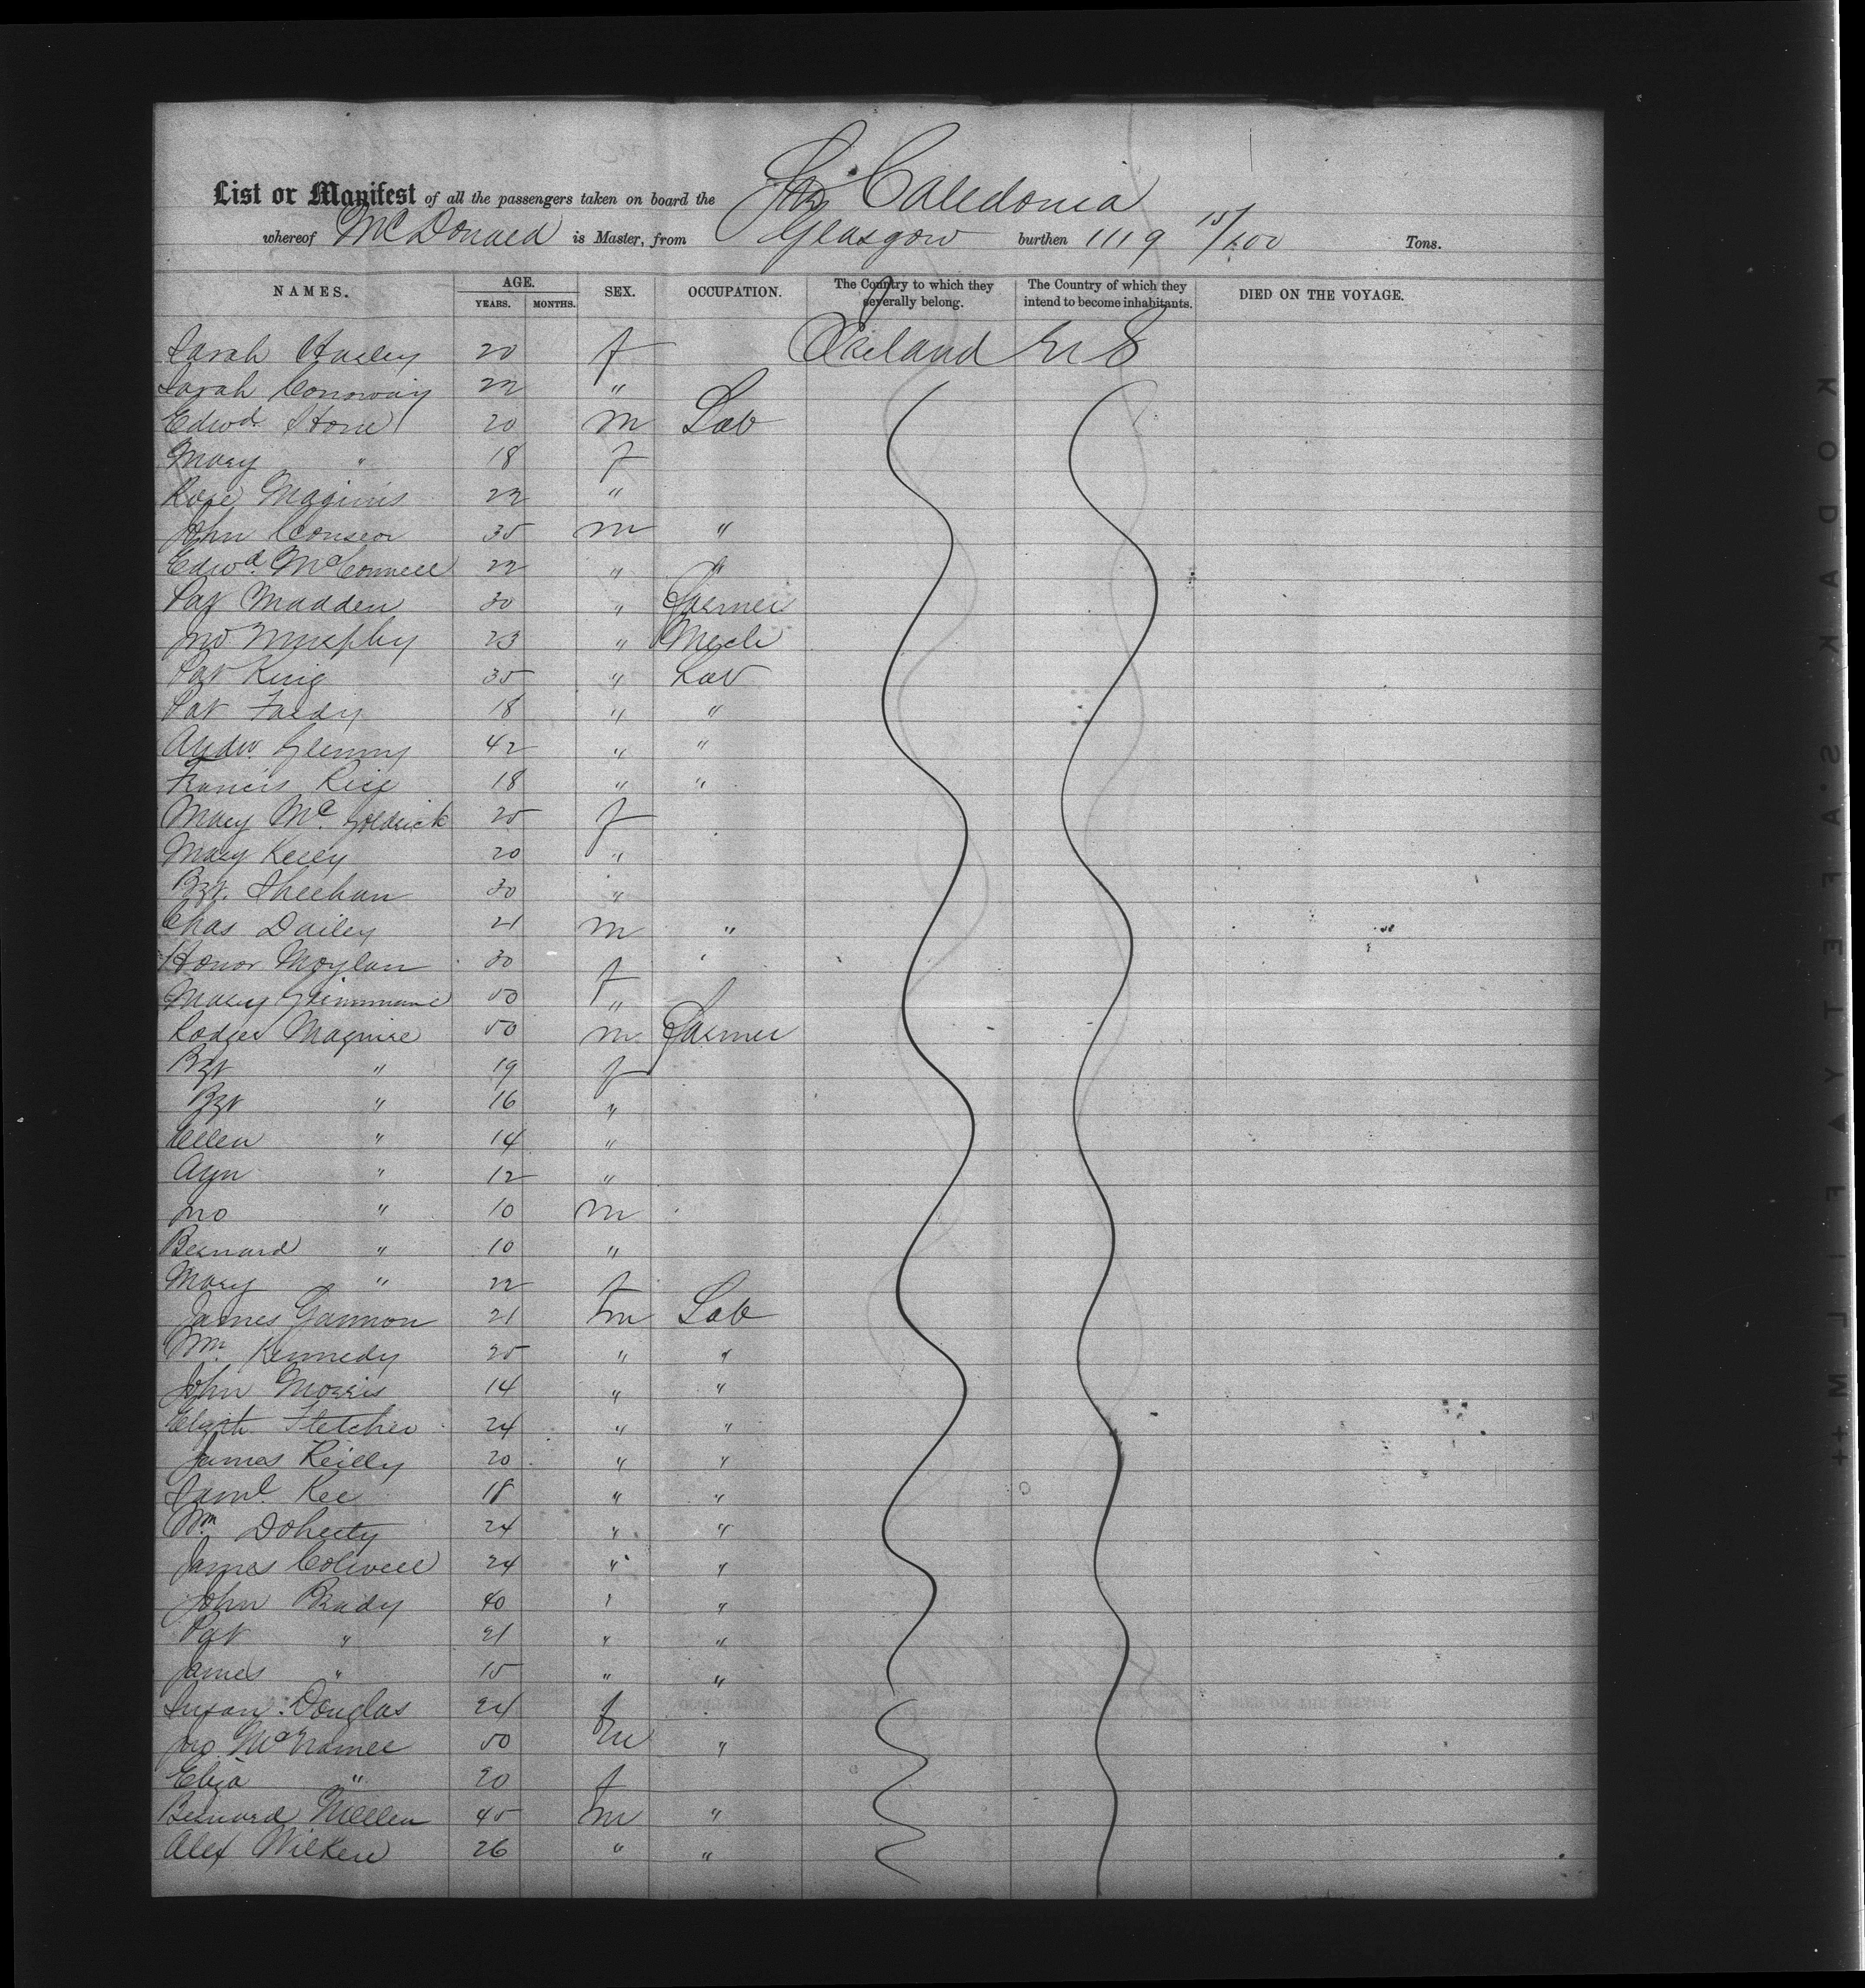 List or Manifest of all the passengers taken on board the Str Caledonia
whereof McDonald is Master, from Glasgow burthen 1119 15/100 Tons.
NAMES. AGE. SEX. OCCUPATION. The Country to which they severally belong. The Country of which they intend to become inhabitants. DIED ON THE VOYAGE.
YEARS. MONTHS.
Sarah Hailey 20 f Ireland U S
Sarah Conoway 22 "
Edwd Stone 20 m Lab
Mary " 18 f
Rose Maginis 22 "
John 35 m "
Edwd. McConnell 22 " "
Pat Madden 30 " Farmer
Jno Murphy 23 " Mech
Pat King 35 " Lab
Pat Fardy 18 " "
Andw 42 " "
Francis Rice 18 " "
Mary Mc Goldrick 25 f
Mary Kelly 20 "
Bgt. Sheehan 30 "
Chas Dailey 21 m "
Honor Moylan 30 f
Mary 50 "
Rodger Maguire 50 m Farmer
Bgt " 19 f
Bgt " 16 "
Ellen " 14 "
Ann " 12 "
Jno " 10 m
Bernard " 10 "
Mary " 22 f
James Gannon 21 m Lab
Wm. Kennedy 25 " "
John Morris 14 " "
Elizth Fletcher 24 " "
James Reilly 20 " "
Saml. Kee 18 " "
Wm Doherty 24 " "
James Colwell 24 " "
John Brady 40 " "
Pat " 21 " "
James " 15 " "
Susan Douglas 24 f
Jno. McNamee 50 m "
Eliza " 20 f
Bernard 45 m "
Alex Wilken 26 " "
KODAK · SAFETY ▲ FILM ++